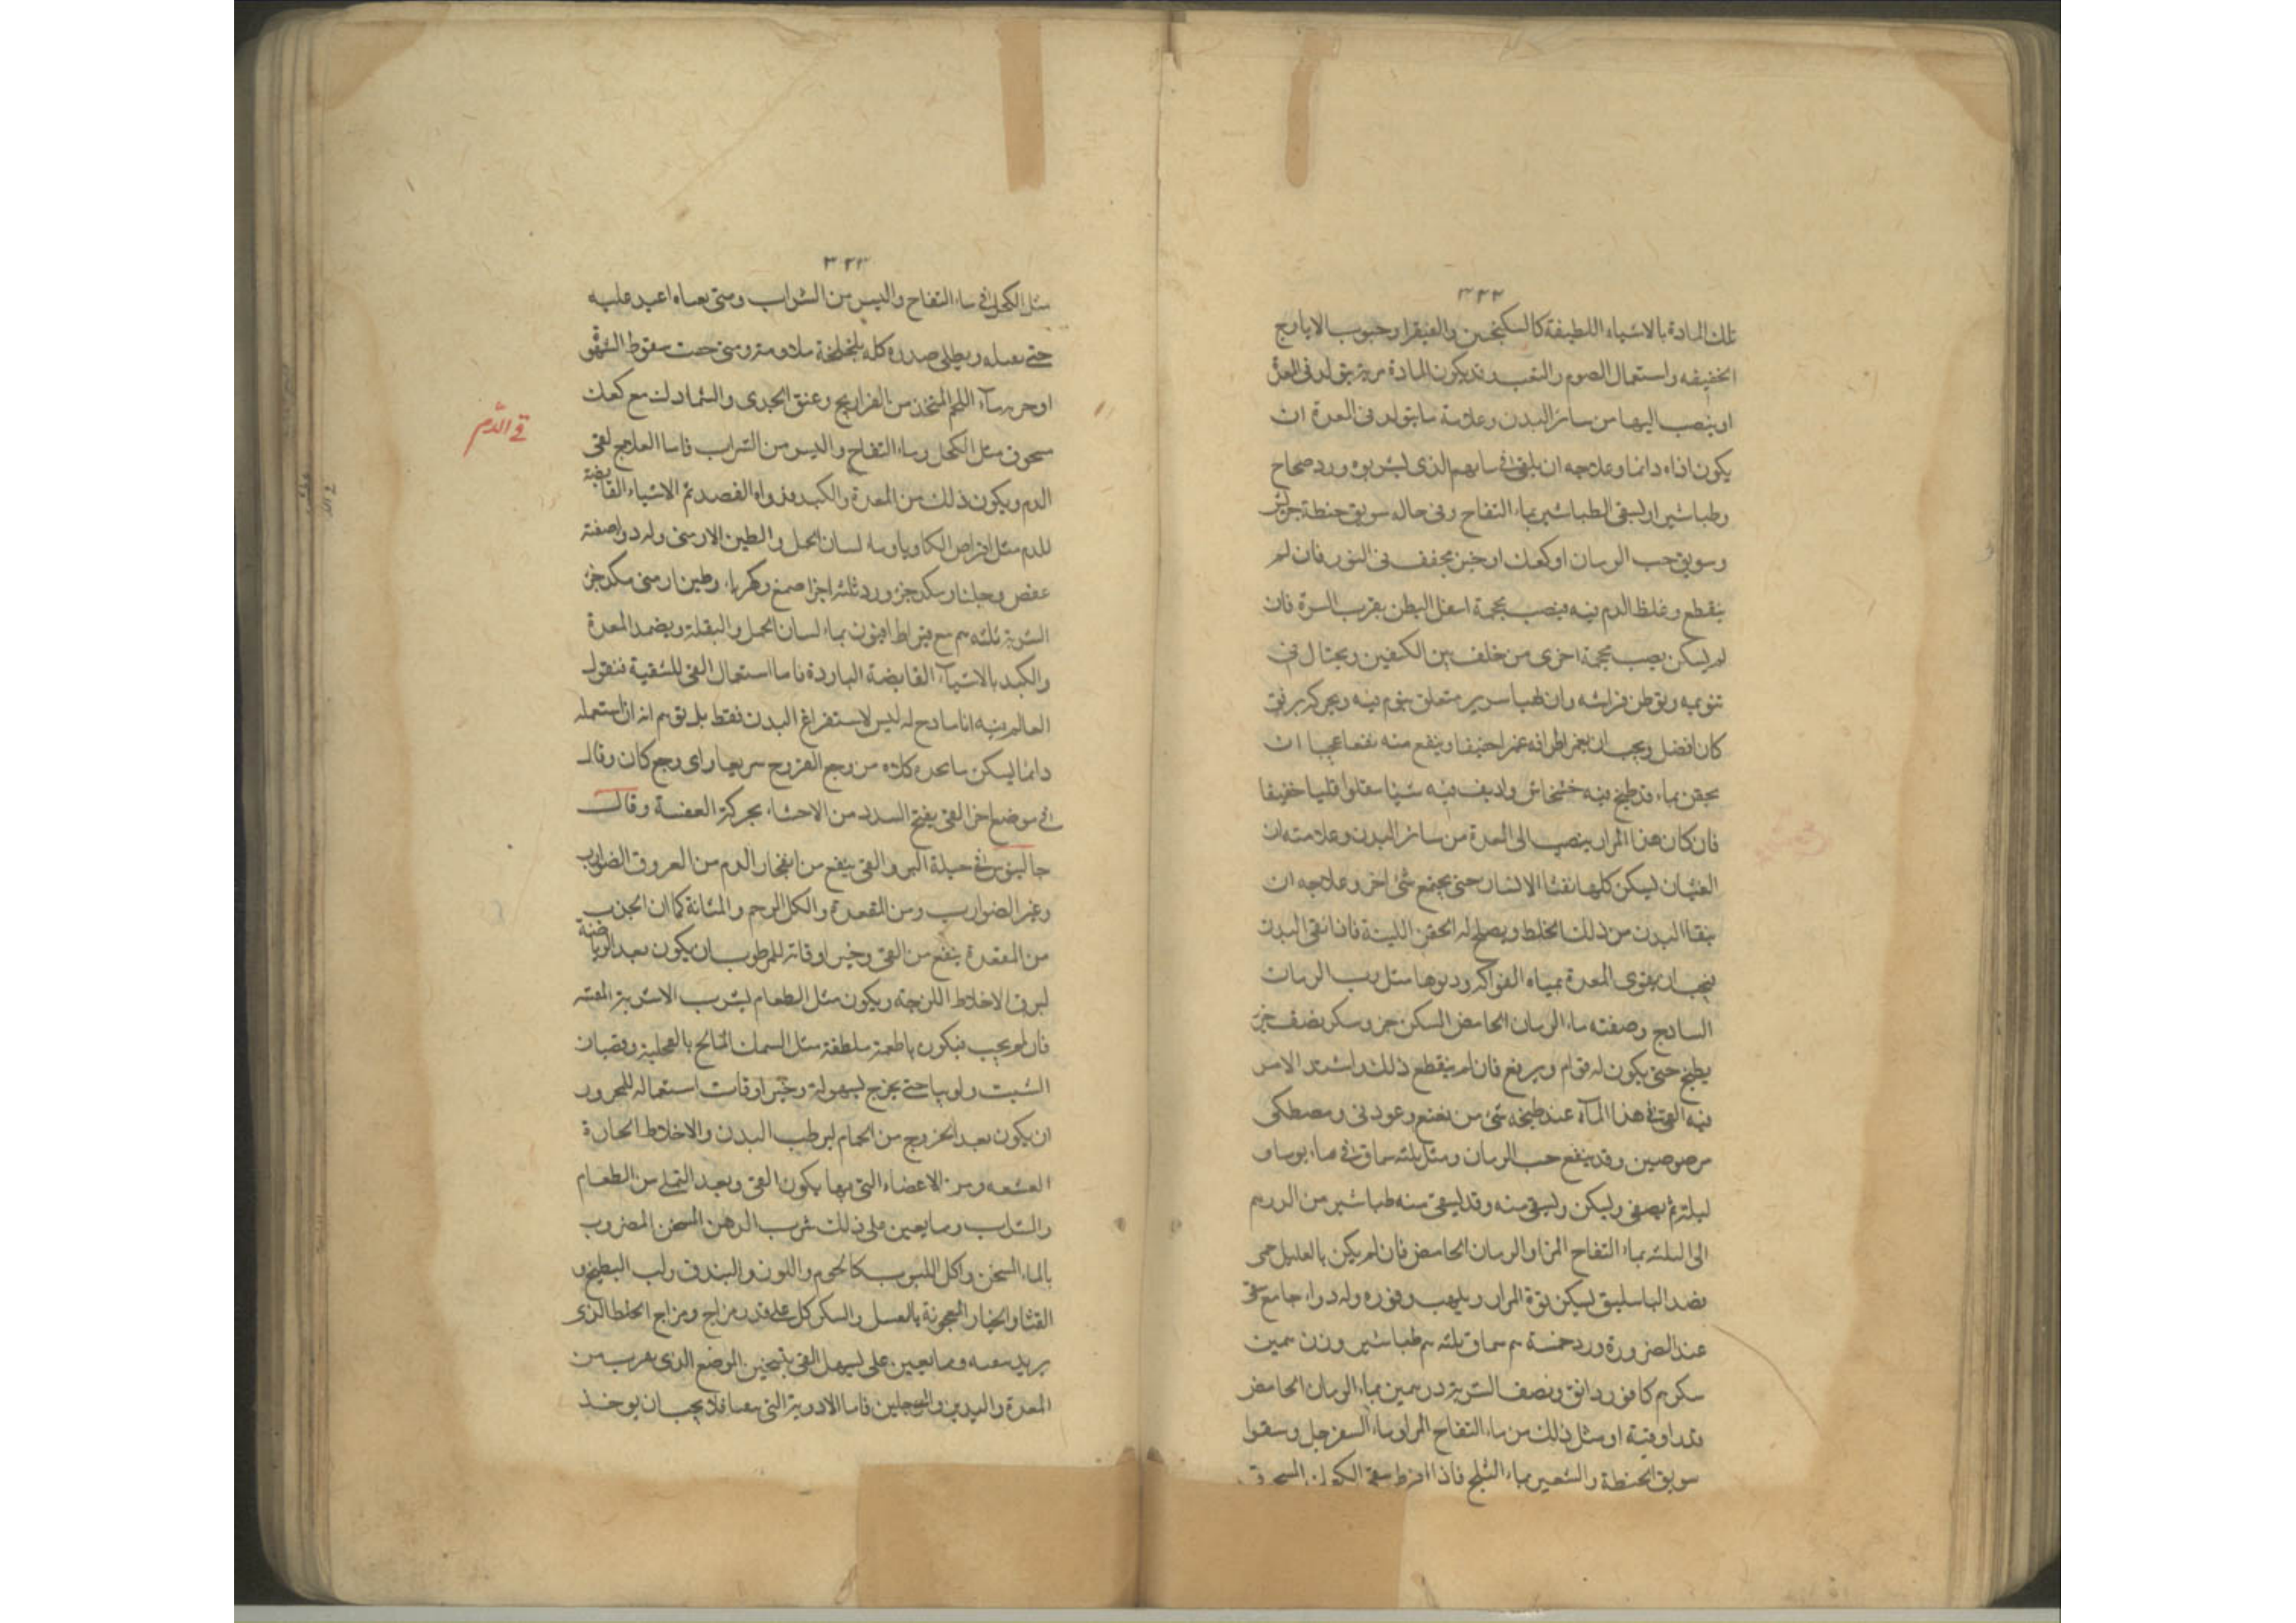 ٣٣٢
تلك المادة بالاشياء اللطيفة كالسكنجبين والفيقرا وحبوب الايارج
الخفيفه واستعمال الصوم والتعب وقد يكون المادة مرية يتولد فى المعدة
او ينصب اليها من سائر البدن وعلامة ما يتولد فى المعدة ان
يكون اذاه دائما وعلاجه ان يلقى فى مائهم الذى يشربوه ورد صحاح
وطباشير او يسقى الطباشير بماء التفاح وفى حاله سويق حنطة
وسويق حب الرمان او كعك او خبز مجفف فى التنور فان لم
ينقطع وغلظ الدم فيه ينصب محجمة اسفل البطن بقرب السرة فان
لم يسكن نصب محجمة اخرى من خلف بين الكتفين ويحتال فى
تنويمه وتوطن فراشه وان طبا سرير متعلق ينوم فيه ويحركه برفق
كان افضل ويجب ان يغمز اطرافه غمزا خفيفا وينفع منه نفعا عجيبا ان
يحقن بماء قد طبخ فيه خشخاش واديف فيه شيئا مقلوا قليا خفيفا
فان كان هذا المرار ينصب الى المعدة من سائر البدن وعلامته ان
الغثيان يسكن كلما تقيأ الانسان حتى يجتمع شئ اخر وعلاجه ان
ينقا البدن من ذلك الخلط ويصلح له الحقن اللينة فاذا نقى البدن
فيجب ان يقوى المعدة بمياه الفواكه وربوبها مثل رب الرمان
السادج وصفته ماء الرمان الحامض السكن جزو سكر نصف جزء
يطبخ حتى يكون له قوام ويرفع فان لم ينقطع ذلك واشتد الامر
فيه القى فى هذا المآء عند طبخه شئ من نعنع وعود نى ومصطكى
مرضوضين وقد ينفع حب الرمان ومثل ثلثه سماق فى ماء يوما و
ليلة ثم يصفى وليكن ويسقى منه وقد يسقى منه طباشير من الدرهم
الى الثلثه بماء التفاح المز او الرمان الحامض فان لم يكن بالعليل حمى
فصد الباسليق ليسكن قوة المرار ويلهب وفوره وله دواء جامع
عند الضرورة ورد خمسة م سماق ثلثه م طباشير وزن
سكر م كافور دانق ونصف الشربة درهمين بماء الرمان الحامض
قدر اوقية او مثل ذلك من ماء التفاح المز او ماء السفرجل وسقوا
سويق الحنطة والشعير بماء الثلج فاذا افرط سقى الكعك المسحوق
٣٣٣
مثل الكحل فى ماء التفاح واليسير من الشراب ومتى اعيد عليه
حتى ويطلى صدره كله بلخلخة متى حدث سقوط الشهوة
مآء اللحم المتخذ من الفراريج وعنق الجدى مع كعك
مسحوق مثل الكحل وماء التفاح واليسير من الشراب فاما العلاج لقى
الدم ويكون ذلك من المعدة والكبد ودواه الفصد ثم الاشياء القابضة
للدم مثل اقراص الكاويا وماء لسان الحمل والطين الارمنى وله دوا صفته
عفص وجلنار مكد جزء ورد ثلثه اجزا صمغ وكهرباء وطين ارمنى مكد جزء
الشربة ثلثه م مع قيراط افيون بماء لسان الحمل والبقلة ويضمد المعدة
والكبد بالاشيآء القابضة الباردة فاما استعمال القى للتنقية فنقول
العالم فيه انا مادح له ليس لاستفراغ البدن فقط بل توهم انه ان استعمله
دائما يسكن ما تحده كلاه من وجع القروح سريعا واى وجع كان وقال
فى موضع اخر القى يفتح السدد من الاحشاء بحركة العفسة وقال
جالينوس فى حيلة البرو القى ينفع من انفجار الدم من العروق الضوارب
وغير الضوارب ومن المقعدة والكلا والرحم والمثانة كما ان الجذب
من المقعدة ينفع من القى وخير اوقاته للمرطوب ان يكون بعد الرياضة
ليرق الاخلاط اللزجة ويكون مثل الطعام يشرب الاشربة المقيئه
فان لم يجب فيكون باطعمة ملطفة مثل السمك المالح بالفجلية وقضبان
الشبت ولوبيا حتى يخرج بسهولة وخير اوقات استعماله للمحرور
ان يكون بعد الخروج من الحمام ليرطب البدن والاخلاط الحارة
ومرز الاعضاء التى بها يكون القى وبعد التملى من الطعام
والشراب ومما يعين على ذلك شرب الدهن المسخن المضروب
بالماء السخن واكل اللبوب كالجوز واللوز والبندق ولب البطيخ و
القثا والخيار المعجونة بالعسل والسكر كل على قدر مزاج ومزاج الخلط الذى
يريد ومما يعين على تسهل القى تسخين الموضع الذى يقرب من
المعدة واليدين والرجلين فاما الادوية التى فلا يجب ان يوخذ
قى الدم